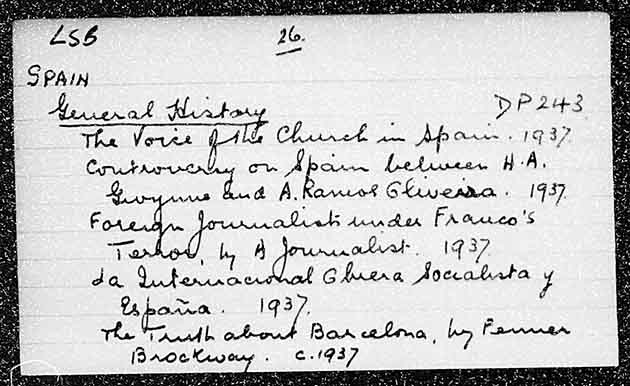 LSB 26.
SPAIN
General History DP243
The Voice of the Church in Spain. 1937.
Controversy on Spain between H.A.
Gwynne and A. Ramos Oliveira. 1937.
Foreign Journalists under Franco's
Terror, by A Journalist. 1937.
La Internacional Obrera Socialista y
España. 1937.
The Truth about Barcelona, by Fenner
Brockway. c.1937